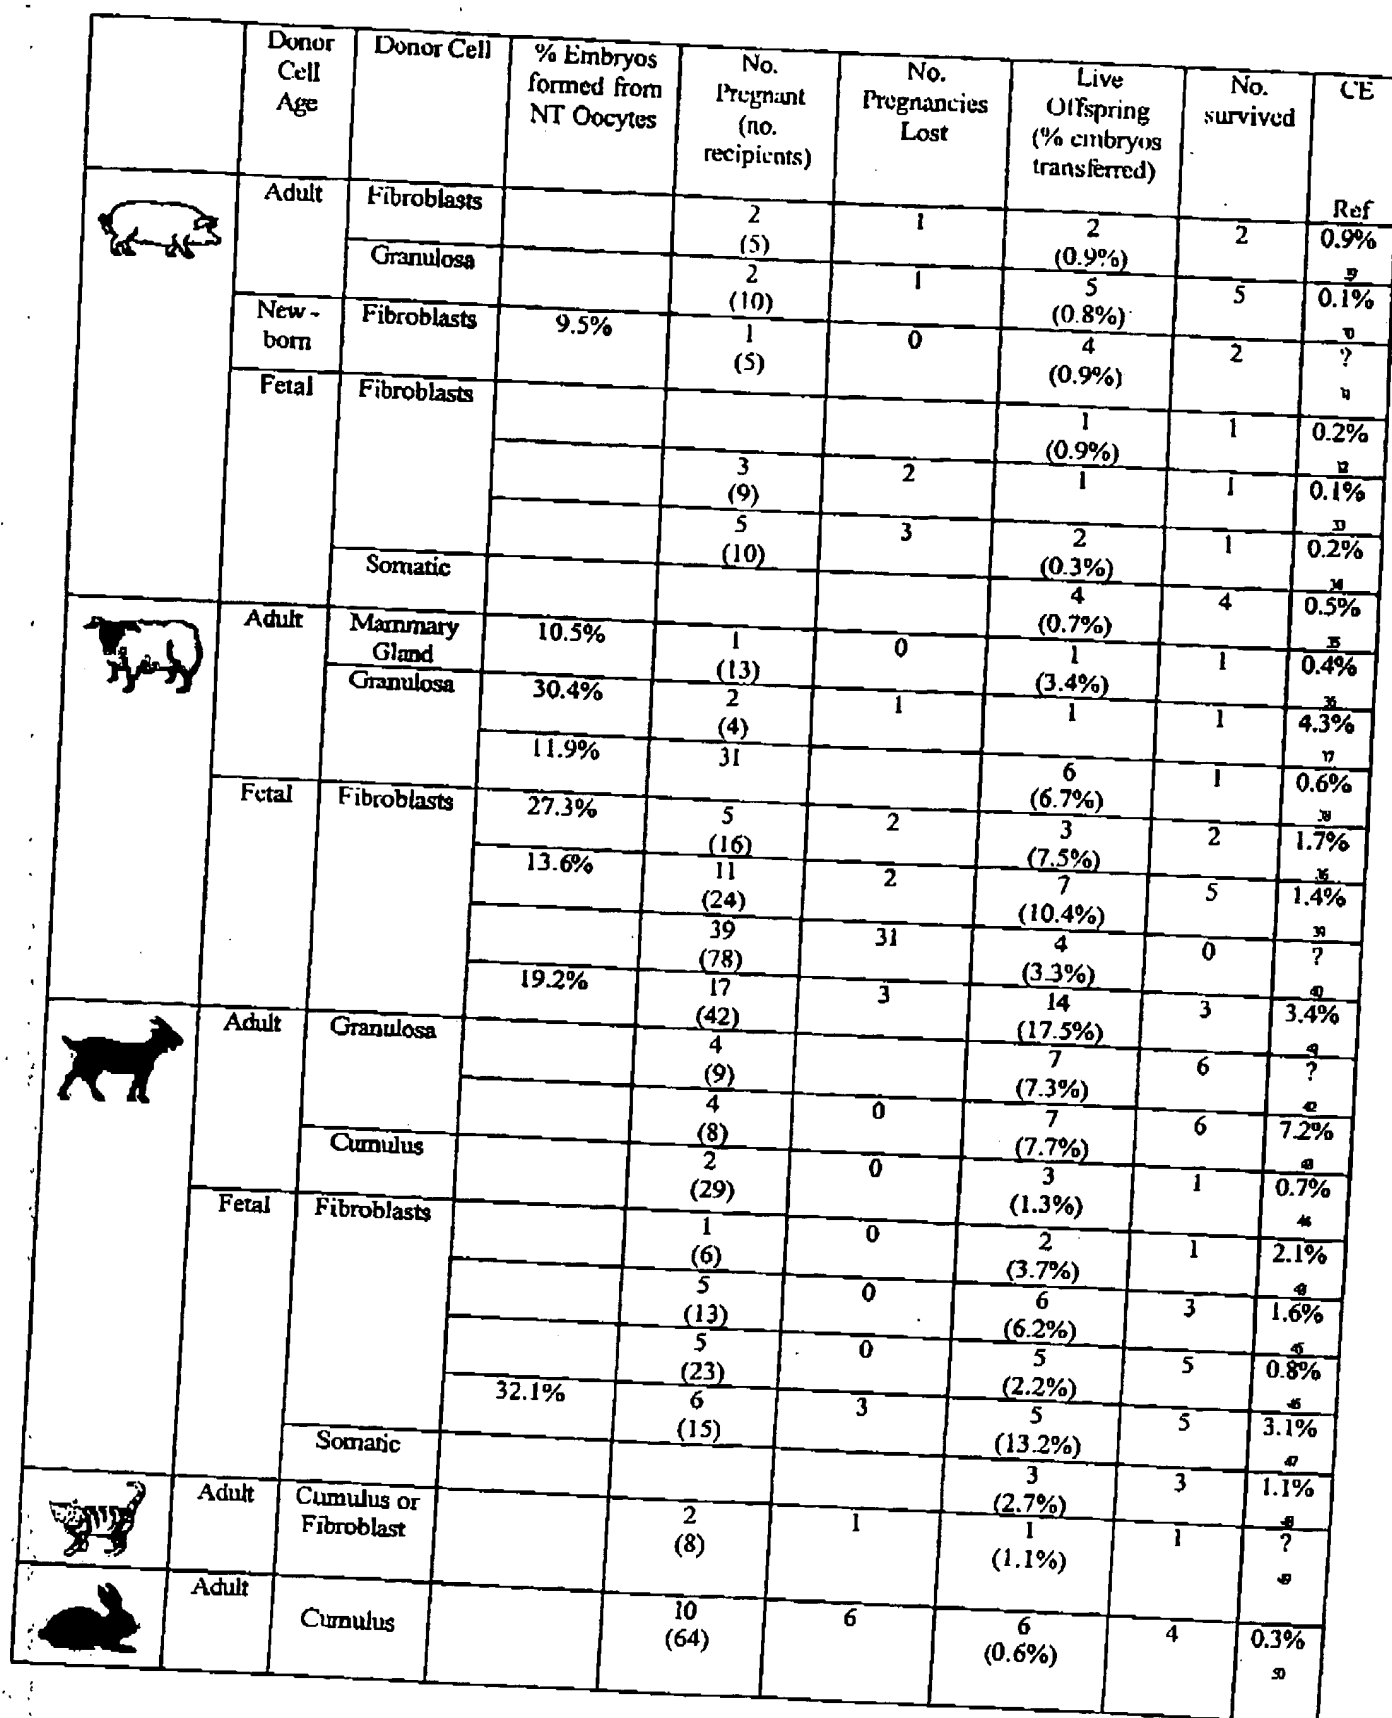 Donor Cell Age | Donor Cell | % Embryos formed from NT Oocytes | No. Pregnant (no. recipients) | No. Pregnancies Lost | Live Offspring (% embryos transferred) | No. survived | CE Ref
Adult | Fibroblasts | | 2 (5) | 1 | 2 (0.9%) | 2 | 0.9%
Granulosa | | 2 (10) | 1 | 5 (0.8%) | 5 | 0.1%
New-born | Fibroblasts | 9.5% | 1 (5) | 0 | 4 (0.9%) | 2 | ?
Fetal | Fibroblasts | | | | 1 (0.9%) | 1 | 0.2%
3 (9) | 2 | 1 | 1 | 0.1%
5 (10) | 3 | 2 (0.3%) | 1 | 0.2%
Somatic | | | | 4 (0.7%) | 4 | 0.5%
Adult | Mammary Gland | 10.5% | 1 (13) | 0 | 1 (3.4%) | 1 | 0.4%
Granulosa | 30.4% | 2 (4) | 1 | 1 | 1 | 4.3%
11.9% | 31 | | 6 (6.7%) | 1 | 0.6%
Fetal | Fibroblasts | 27.3% | 5 (16) | 2 | 3 (7.5%) | 2 | 1.7%
13.6% | 11 (24) | 2 | 7 (10.4%) | 5 | 1.4%
39 (78) | 31 | 4 (3.3%) | 0 | ?
19.2% | 17 (42) | 3 | 14 (17.5%) | 3 | 3.4%
Adult | Granulosa | | 4 (9) | | 7 (7.3%) | 6 | ?
4 (8) | 0 | 7 (7.7%) | 6 | 7.2%
Cumulus | | 2 (29) | 0 | 3 (1.3%) | 1 | 0.7%
Fetal | Fibroblasts | | 1 (6) | 0 | 2 (3.7%) | 1 | 2.1%
5 (13) | 0 | 6 (6.2%) | 3 | 1.6%
5 (23) | 0 | 5 (2.2%) | 5 | 0.8%
32.1% | 6 (15) | 3 | 5 (13.2%) | 5 | 3.1%
Somatic | | | | 3 (2.7%) | 3 | 1.1%
Adult | Cumulus or Fibroblast | | 2 (8) | 1 | 1 (1.1%) | 1 | ?
Adult | Cumulus | | 10 (64) | 6 | 6 (0.6%) | 4 | 0.3% 50